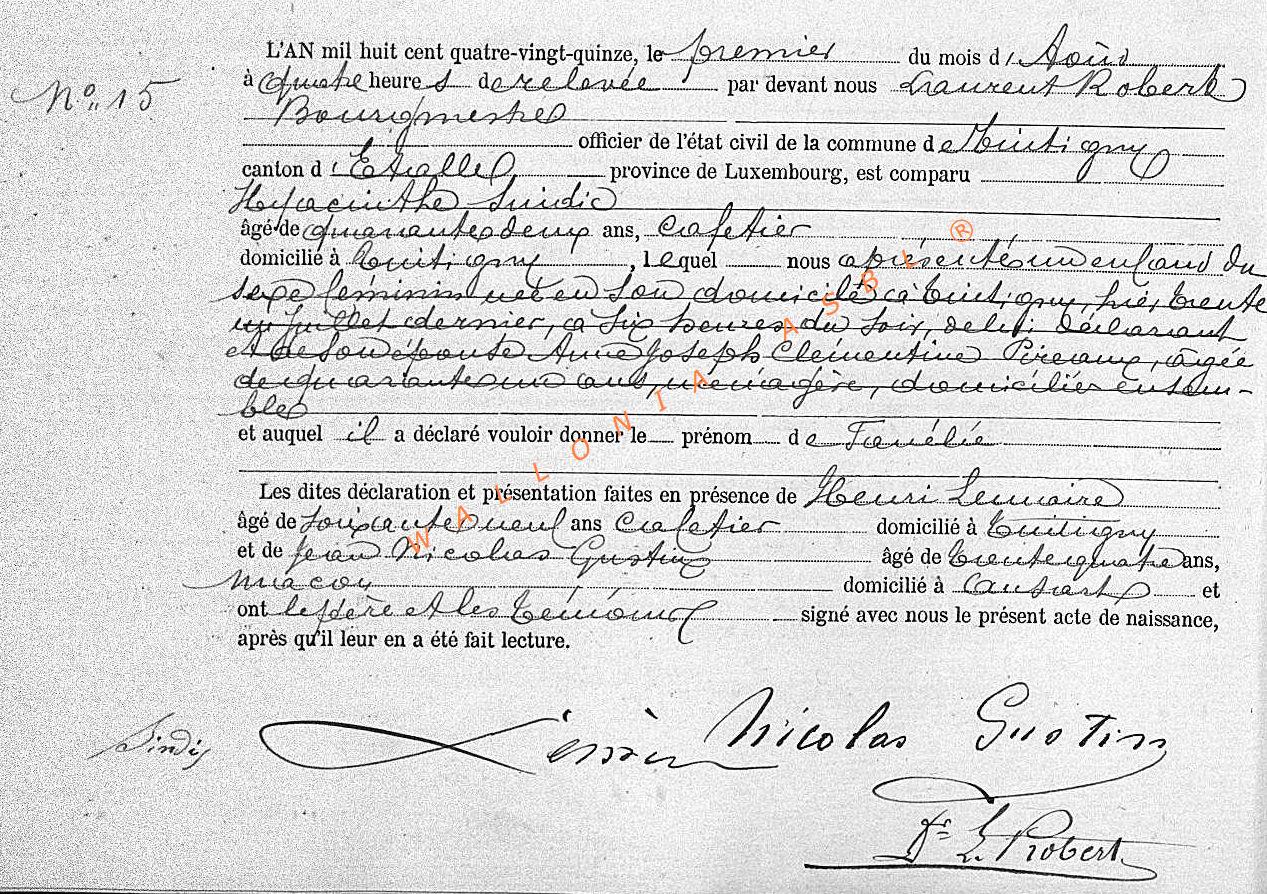 L'AN mil huit cent quatre-vingt-quinze, le premier du mois d'Août
No 15
à quatre heures de relevée par devant nous Laurent Robert
Bourgmestre
officier de l'état civil de la commune de Tintigny
canton d'Etalle province de Luxembourg, est comparu
Hyacinthe Sindic
âgé de quarante deux ans, cafetier
domicilié à Tintigny, lequel nous a présenté un enfant du
sexe féminin né en son domicile à Tintigny, hier trente
un juillet dernier, à six heures du soir, de lui déclarant
et de son épouse Anne Joseph Clémentine Pireaux, âgée
de quarante un ans, ménagère, domiciliés ensem-
ble
et auquel il a déclaré vouloir donner le prénom de Fanélie
Les dites déclaration et présentation faites en présence de Henri Lemaire
âgé de soixante neuf ans cafetier domicilié à Tintigny
et de Jean Nicolas Gustin âgé de trente quatre ans,
maçon domicilié à Ansart et
ont le père et les témoins signé avec nous le présent acte de naissance,
après qu'il leur en a été fait lecture.
Sindic Nicolas Gustin
Dr L Robert
WALLONIA ASBL ®